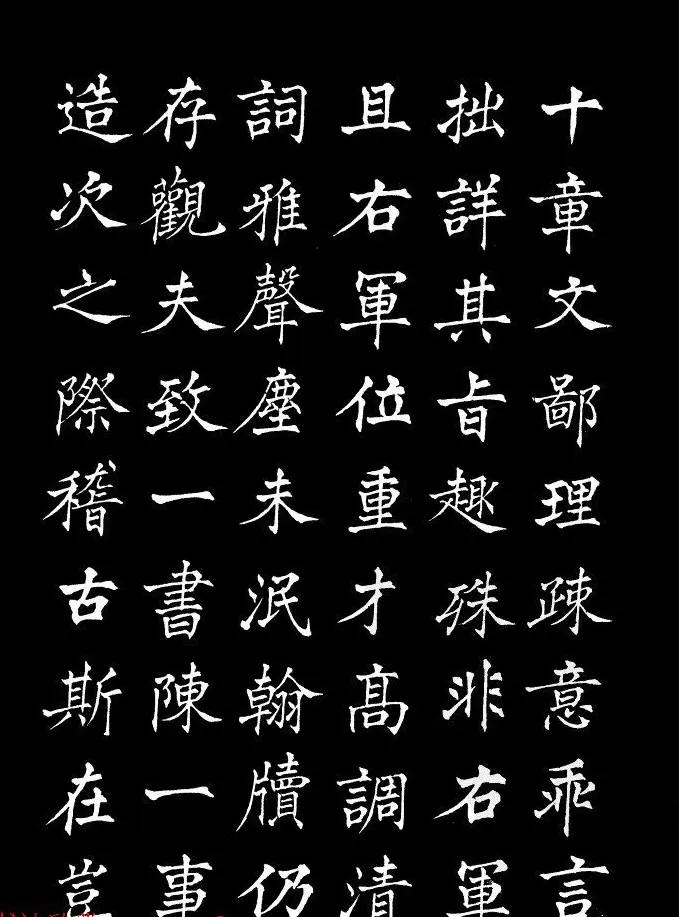 十章文鄙理疎意乖言
拙詳其旨趣殊非右軍
且右軍位重才高調清
詞雅聲塵未泯翰牘仍
存觀夫致一書陳一事
造次之際稽古斯在豈